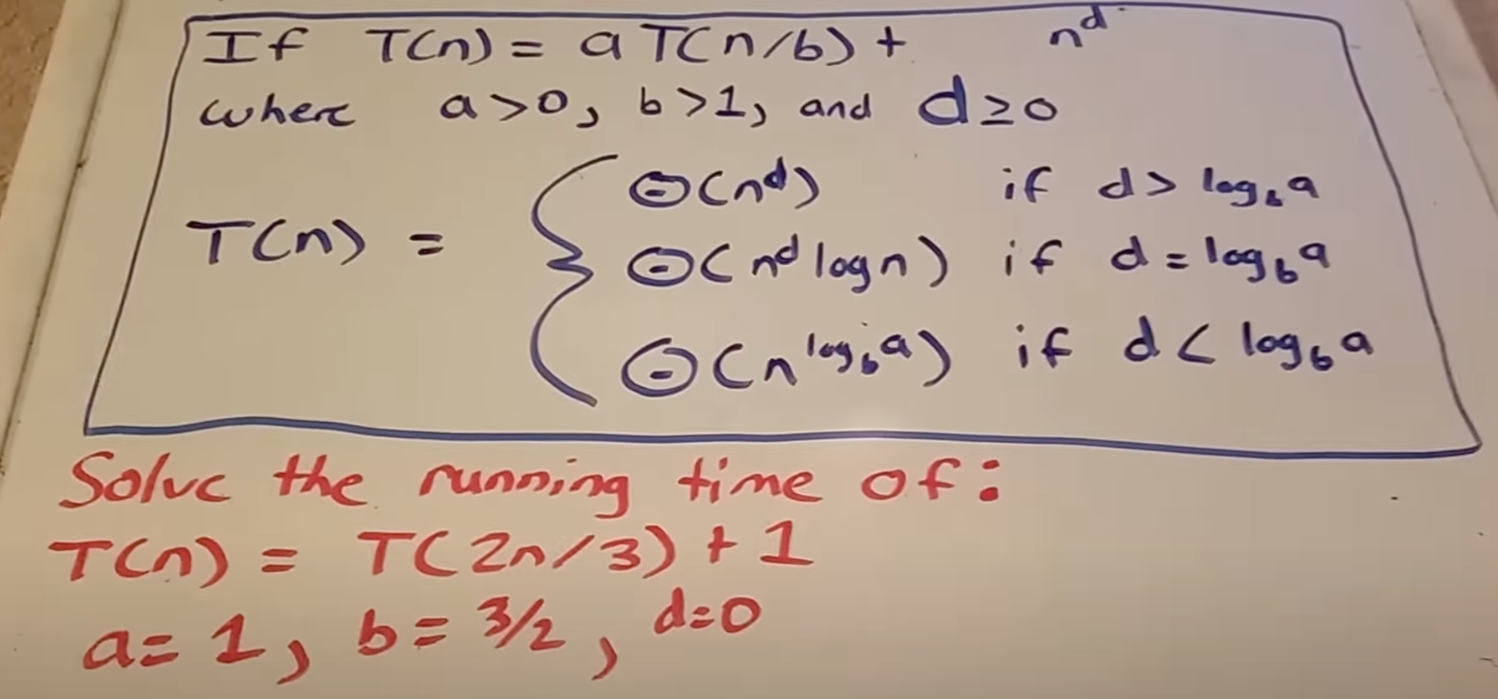 If T(n) = a T(n/b) + n^d
where a > 0, b > 1, and d ≥ 0
Θ(n^d) if d > log_b a
T(n) = { Θ(n^d log n) if d = log_b a
Θ(n^{log_b a}) if d < log_b a
Solve the running time of:
T(n) = T(2n/3) + 1
a = 1, b = 3/2, d = 0